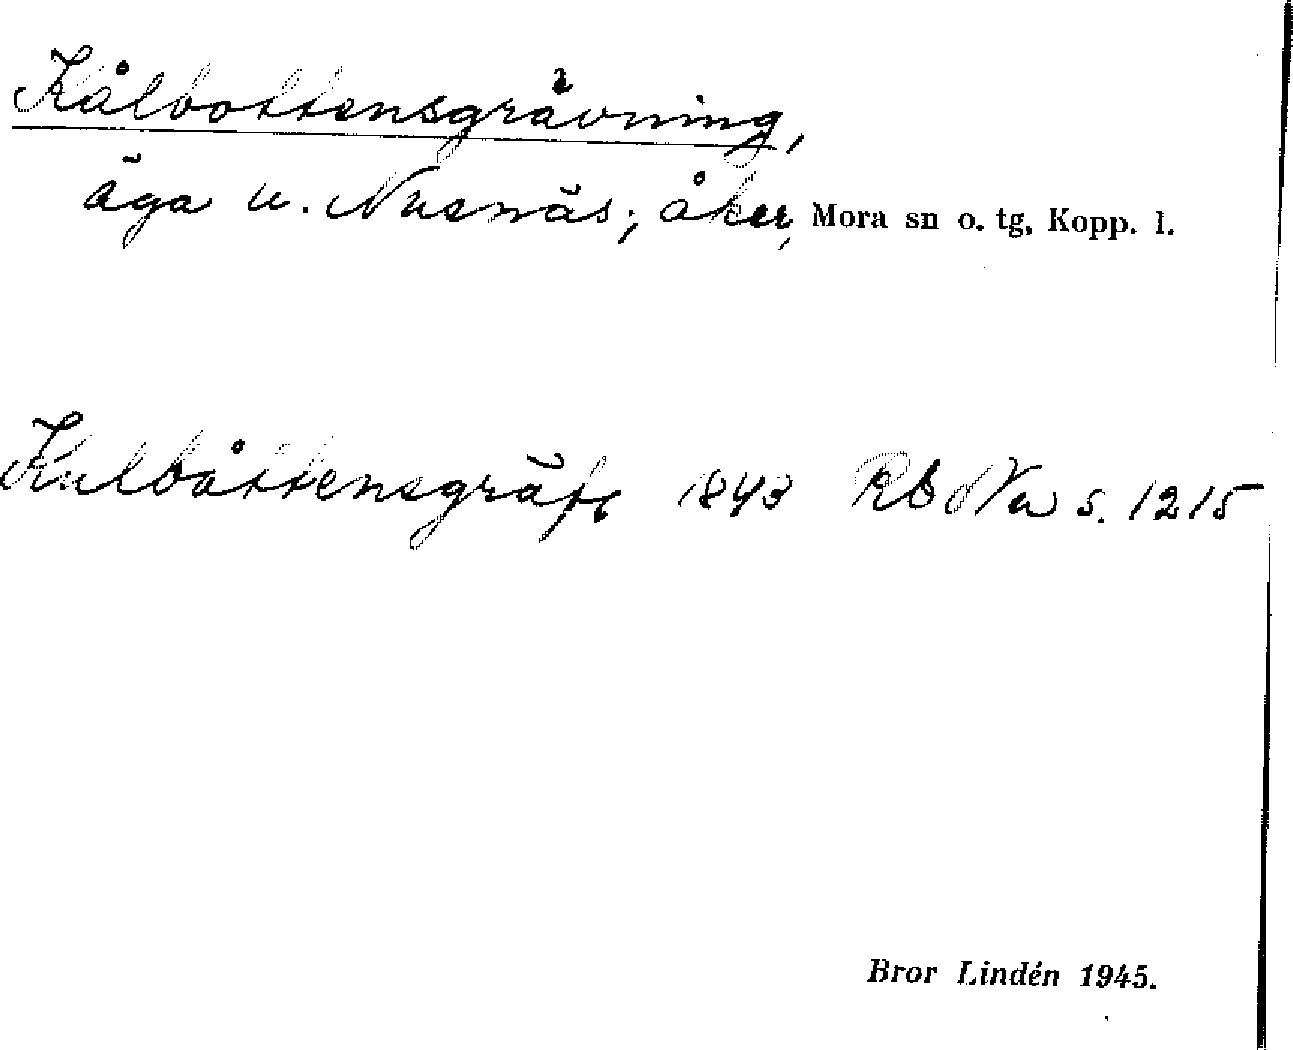 Kålbottensgrävning,
äga u. Nusnäs; åker, Mora sn o. tg, Kopp. l.
Kulbåttensgräft 1843 Rb Nu s. 1215
Bror Lindén 1945.